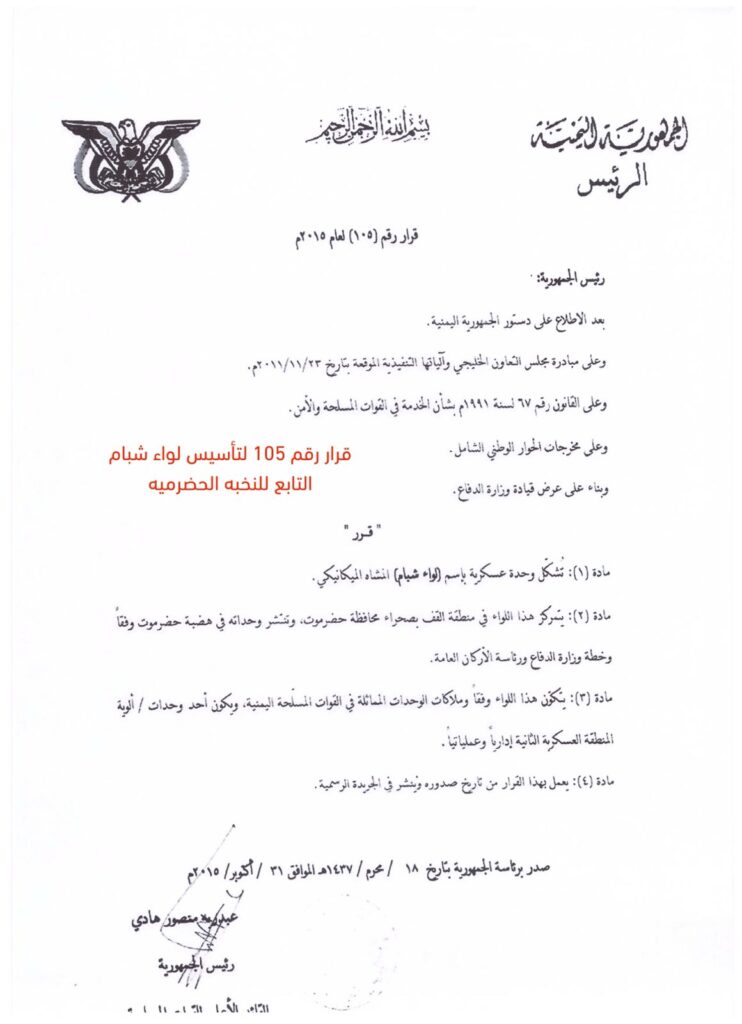 الجمهورية اليمنية
الرئيس
بسم الله الرحمن الرحيم
قرار رقم (١٠٥) لعام ٢٠١٥م
رئيس الجمهورية:
بعد الاطلاع على دستور الجمهورية اليمنية.
وعلى مبادرة مجلس التعاون الخليجي وآلياتها التنفيذية الموقعة بتاريخ ٢٠١١/١١/٢٣م.
وعلى القانون رقم ٦٧ لسنة ١٩٩١م بشأن الخدمة في القوات المسلحة والأمن.
وعلى مخرجات الحوار الوطني الشامل.
وبناء على عرض قيادة وزارة الدفاع.
قرار رقم 105 لتأسيس لواء شبام
التابع للنخبه الحضرميه
" قـرر "
مادة (١): تُشكّل وحدة عسكرية بإسم (لواء شبام) المشاه الميكانيكي.
مادة (٢): يتمركز هذا اللواء في منطقة القف بصحراء محافظة حضرموت، وتنتشر وحداته في هضبة حضرموت وفقاً
وخطة وزارة الدفاع ورئاسة الأركان العامة.
مادة (٣): يتكوّن هذا اللواء وفقاً وملاكات الوحدات المماثلة في القوات المسلّحة اليمنية، ويكون أحد وحدات / ألوية
المنطقة العسكرية الثانية إدارياً وعملياتياً.
مادة (٤): يعمل بهذا القرار من تاريخ صدوره ويُنشر في الجريدة الرسمية.
صدر برئاسة الجمهورية بتاريخ ١٨ / محرم / ١٤٣٧هـ الموافق ٣١ / أكتوبر/ ٢٠١٥م
عبدربه منصور هادي
رئيس الجمهورية